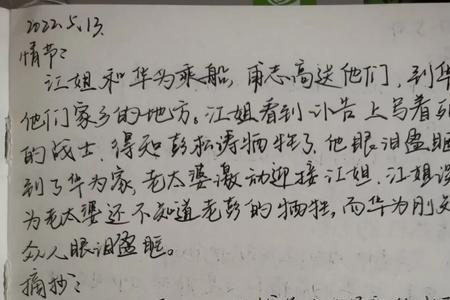 2022.5.13.
情节:
江姐和华为乘船，甫志高送他们，到华
他们家乡的地方，江姐看到讣告上写着
的战士，得知彭松涛牺牲了，他眼泪盈眶
到了华为家，老太婆激动迎接江姐，江姐
为老太婆还不知道老彭的牺牲，而华为刚
众人眼泪盈眶。
摘抄: